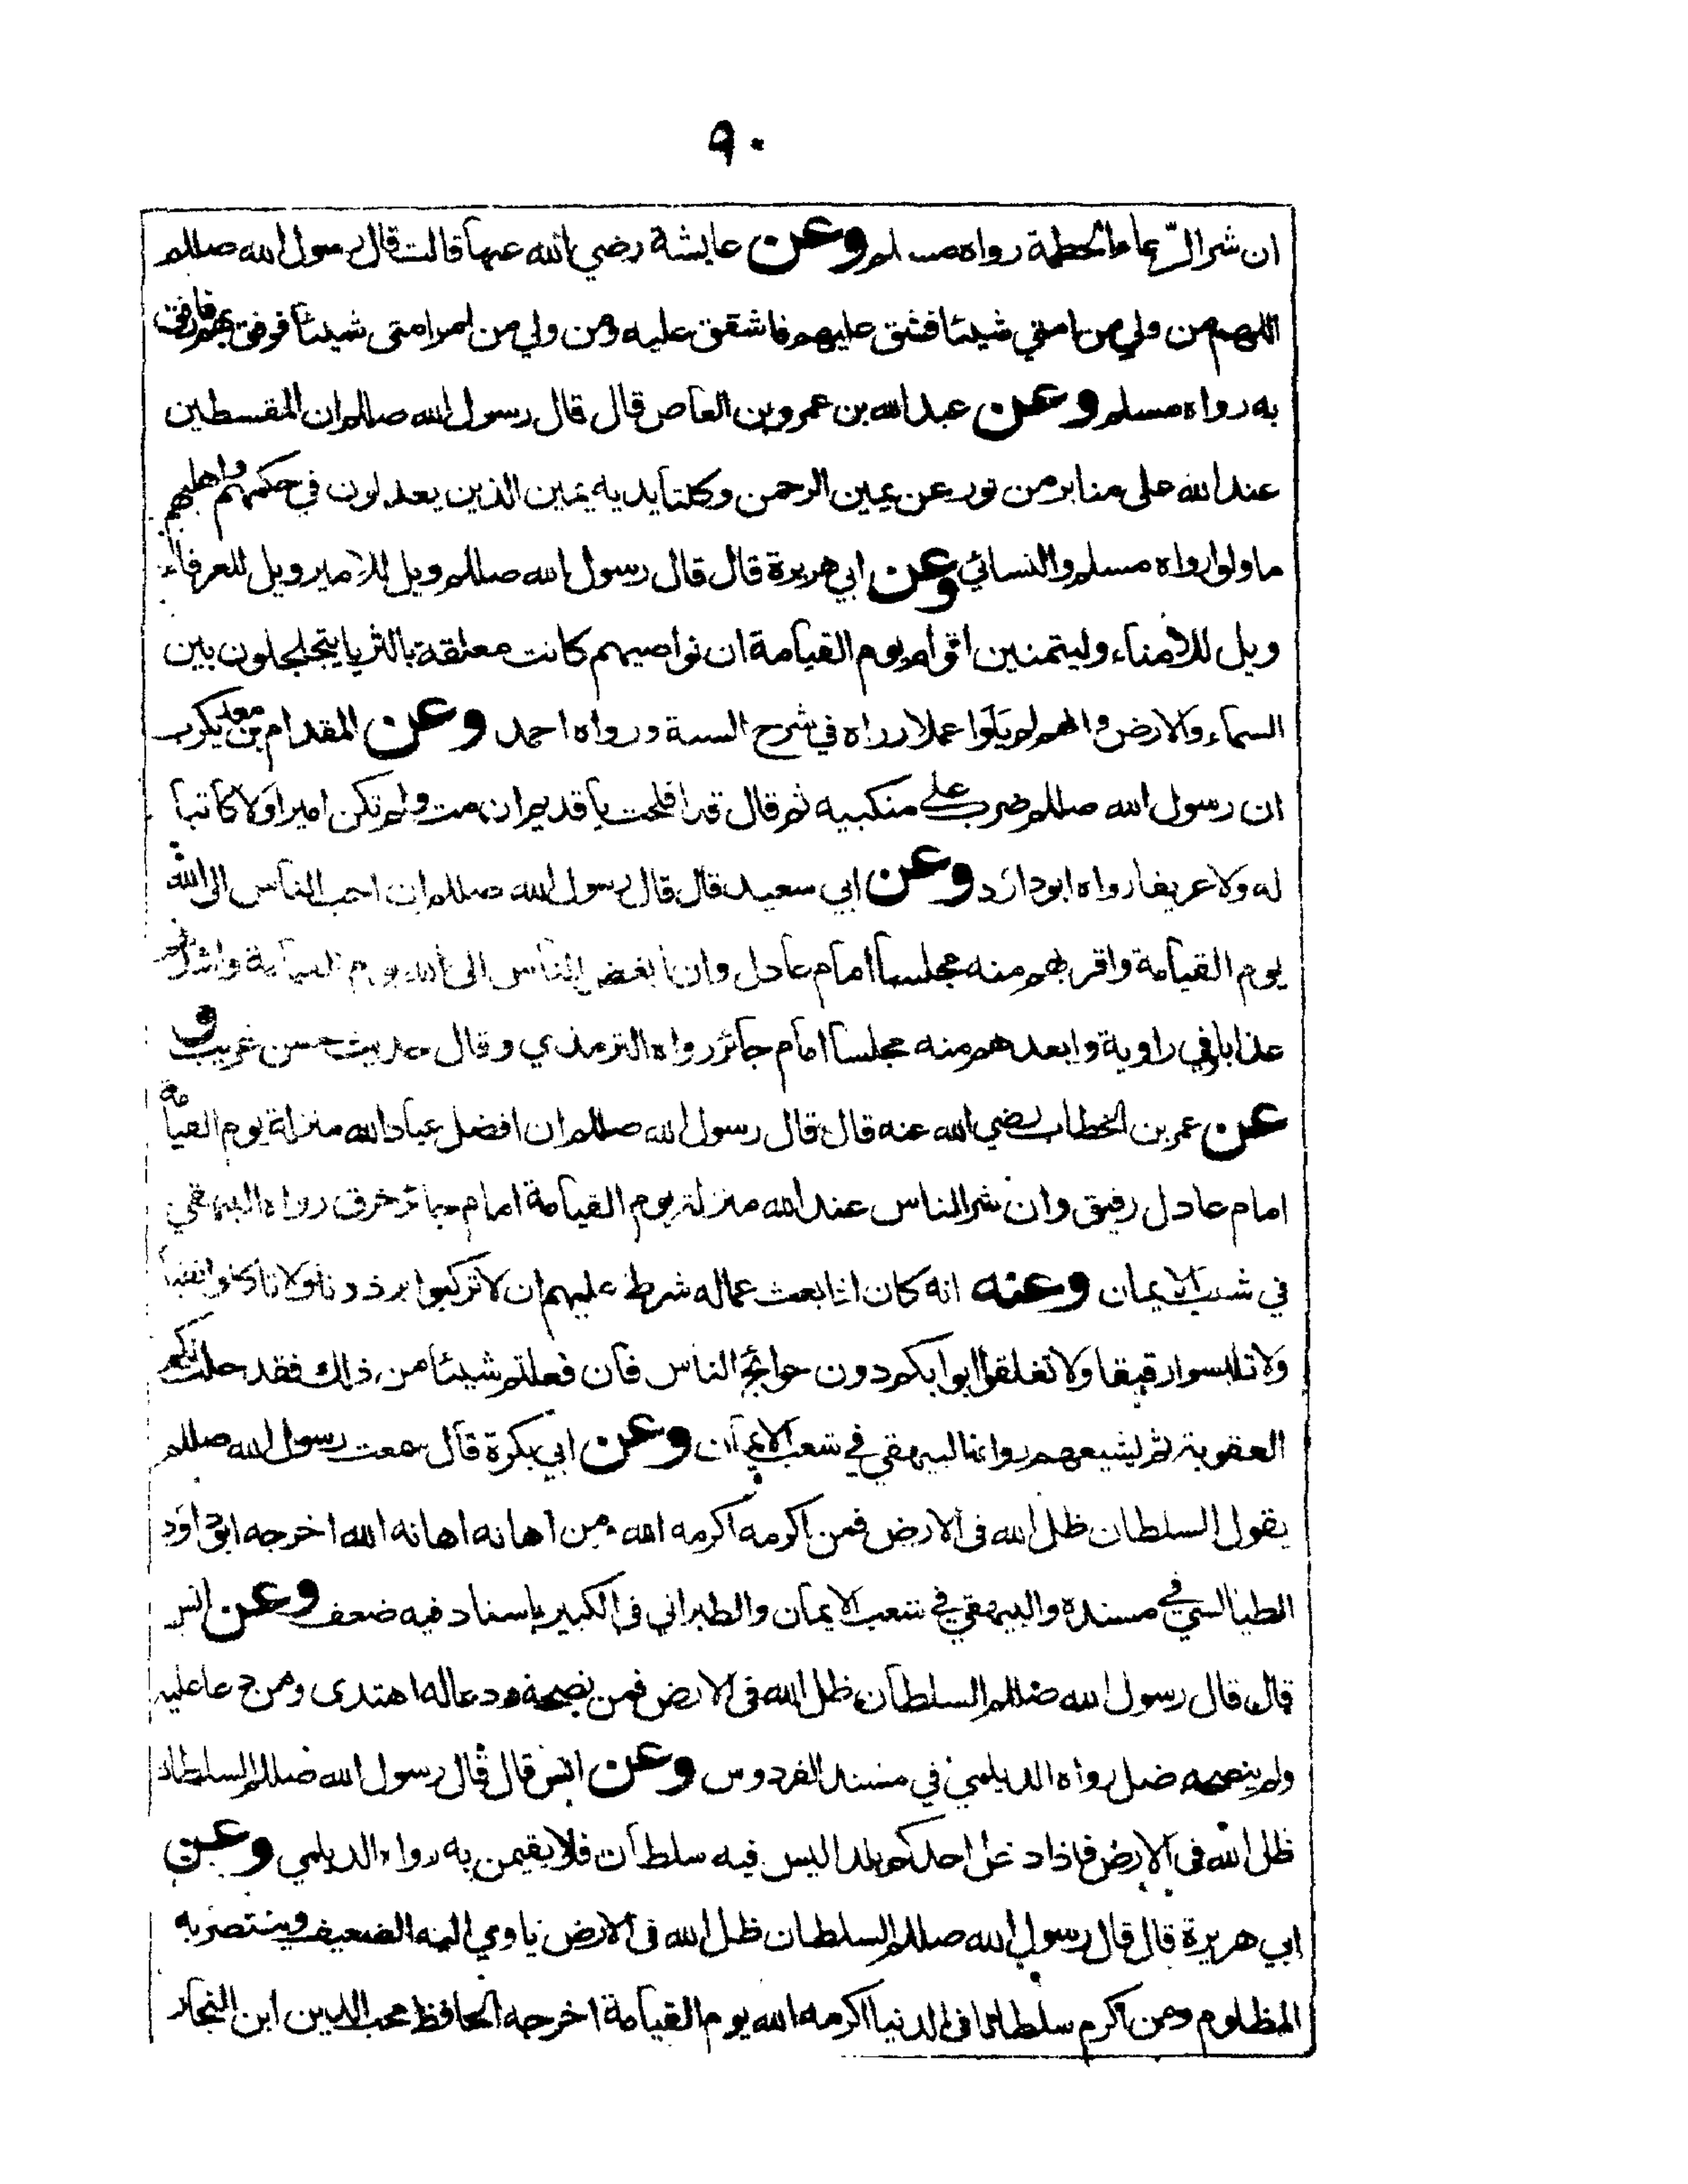 ٩٠
ان شر الرّعاء الحطمة رواه مسلم وعن عايشة رضي الله عنها قالت قال رسول الله صللم
اللهم من ولي من امتي شيئا فشق عليهم فاشقق عليه ومن ولي من امر امتى شيئا فرفق بهم فارفق
به رواه مسلم وعن عبد الله بن عمرو بن العاص قال قال رسول الله صللم ان المقسطين
عند الله على منابر من نور عن يمين الرحمن وكلتا يديه يمين الذين يعدلون في حكمهم واهليهم
ما ولوا رواه مسلم والنسائي وعن ابي هريرة قال قال رسول الله صللم ويل للامير ويل للعرفاء
ويل للامناء وليتمنين اقوام يوم القيامة ان نواصيهم كانت معلقة بالثريا يتجلجلون بين
السماء والارض و انهم لم يلوا عملا رواه في شرح السنة ورواه احمد وعن المقدام بن معد يكرب
ان رسول الله صللم ضرب على منكبيه ثم قال قد افلحت يا قديم ان مت ولم تكن اميرا ولا كاتبا
له ولا عريفا رواه ابوداؤد وعن ابي سعيد قال قال رسول الله صللم ان احب الناس الى الله
يوم القيامة واقربهم منه مجلسا امام عادل وان ابغض الناس الى الله يوم القيامة واشدهم
عذابا وفي رواية وابعدهم منه مجلسا امام جائر رواه الترمذي وقال حديث حسن غريب و
عن عمر بن الخطاب رضي الله عنه قال قال رسول الله صللم ان افضل عباد الله منزلة يوم القيامة
امام عادل رفيق وان شر الناس عند الله منزلة يوم القيامة امام جائر خرق رواه البيهقي
في شعب الايمان وعنه انه كان اذا بعث عماله شرط عليهم ان لا تركبوا برذونا ولا تاكلوا نقيا
ولا تلبسوا رقيقا ولا تغلقوا ابوابكم دون حوائج الناس فان فعلتم شيئا من ذلك فقد حلت بكم
العقوبة ثم يشيعهم رواهما البيهقي في شعب الايمان وعن ابي بكرة قال سمعت رسول الله صللم
يقول السلطان ظل الله فى الارض فمن اكرمه اكرمه الله ومن اهانه اهانه الله اخرجه ابو داود
الطيالسي في مسنده والبيهقي في شعب الايمان والطبراني فى الكبير باسناد فيه ضعف وعن انس
قال قال رسول الله صللم السلطان ظل الله فى الارض فمن نصحه ودعا له اهتدى ومن دعا عليه
ولم ينصحه ضل رواه الديلمي في مسند الفردوس وعن انس قال قال رسول الله صللم السلطان
ظل الله فى الارض فاذا دخل احدكم بلدا ليس فيه سلطان فلا يقيمن به رواه الديلمي وعن
ابي هريرة قال قال رسول الله صللم السلطان ظل الله فى الارض ياوي اليه الضعيف وينتصر به
المظلوم ومن اكرم سلطانا فى الدنيا اكرمه الله يوم القيامة اخرجه الحافظ محب الدين ابن النجار